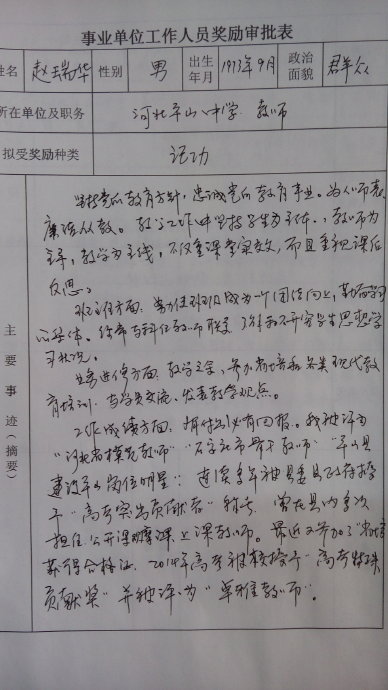 事业单位工作人员奖励审批表
姓名 赵瑞华 性别 男 出生年月 1973年9月 政治面貌 群众
所在单位及职务 河北平山中学 教师
拟受奖励种类 记功
主要事迹(摘要)
坚持党的教育方针，忠诚党的教育事业。为人师表，
廉洁从教。教学工作中坚持学生为主体，教师为
主导，教学为主线，不仅重课堂实效，而且重视课后
反思。
班主任方面：努力使班级成为一个团结向上，勤奋学习
的集体。经常与科任教师联系，了解和研究学生思想学
习状况。
业务进修方面：教学之余，参加省培和各类现代教
育培训，与学员交流，发表教学观点。
工作成绩方面：有付出必有回报。我被评为
"河北省模范教师" "石家庄市骨干教师" "平山县
建设平山岗位明星"；连续多年被县委县政府授
予"高考突出贡献者"称号，曾在县内多次
担任公开课观摩课上课教师。最近又参加了省培
获得合格证，2014年高考被校授予"高考特殊
贡献奖"并被评为"卓雅教师"。